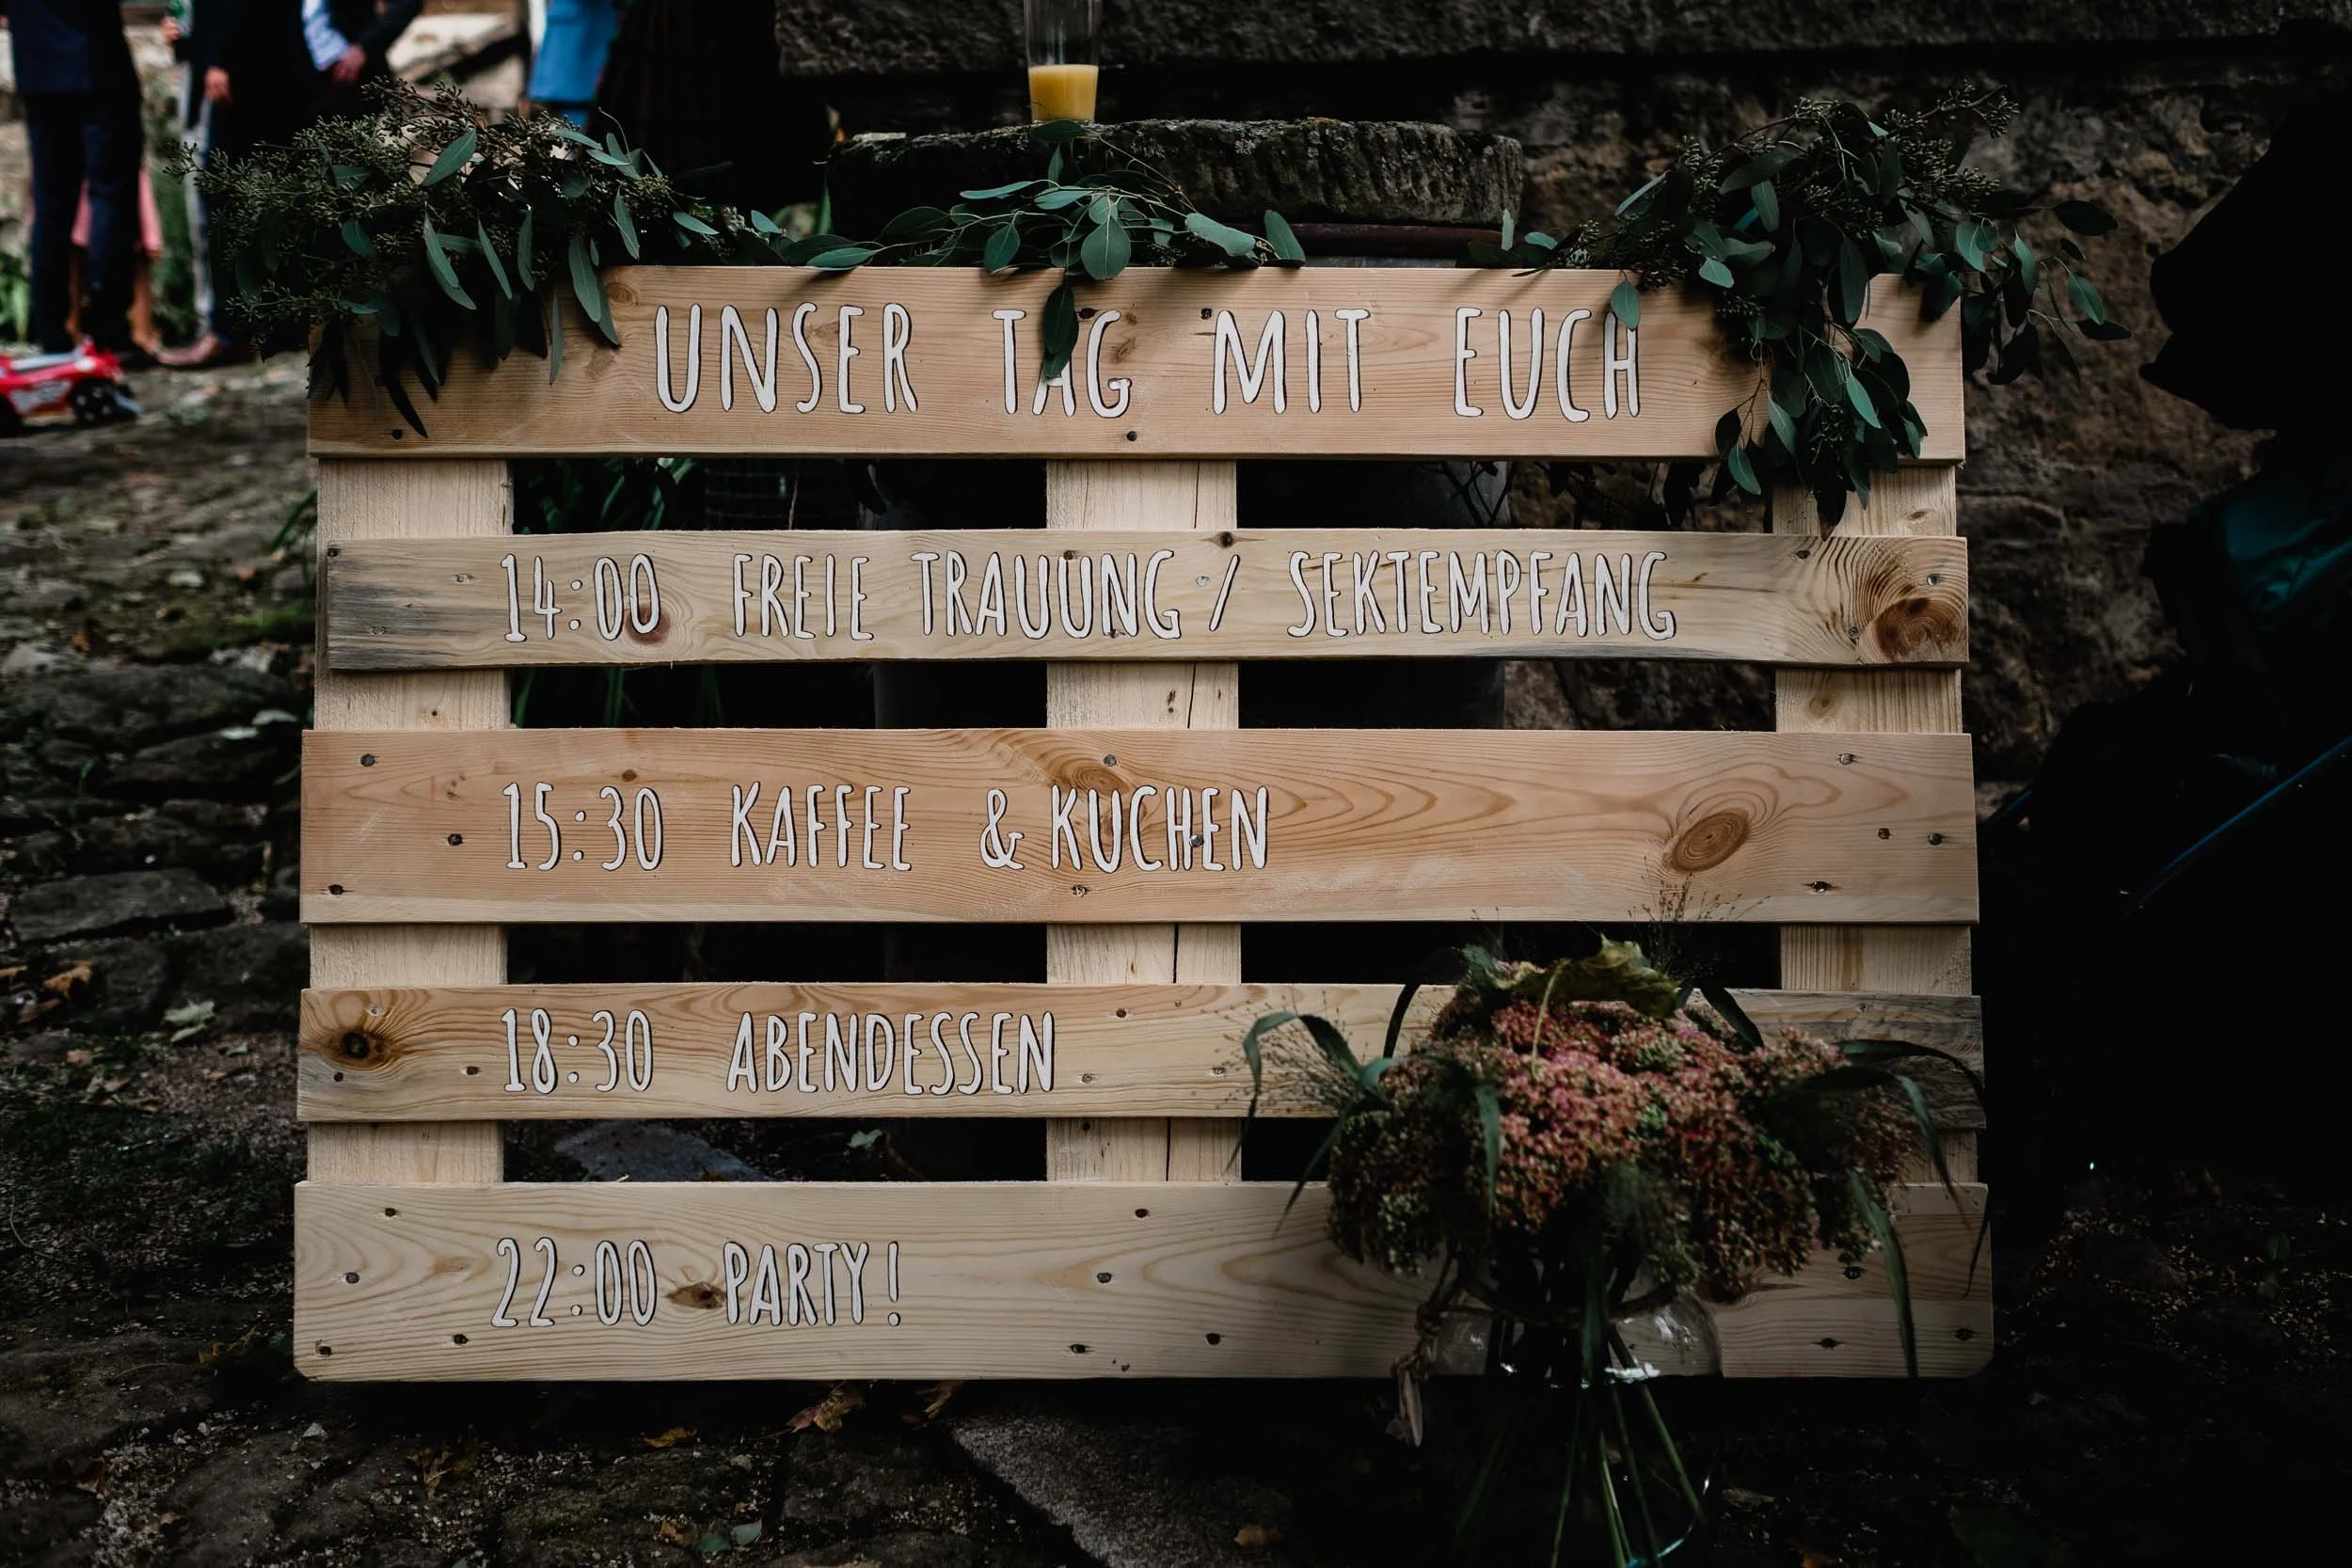 UNSER TAG MIT EUCH
14:00 FREIE TRAUUNG / SEKTEMPFANG
15:30 KAFFEE & KUCHEN
18:30 ABENDESSEN
22:00 PARTY!